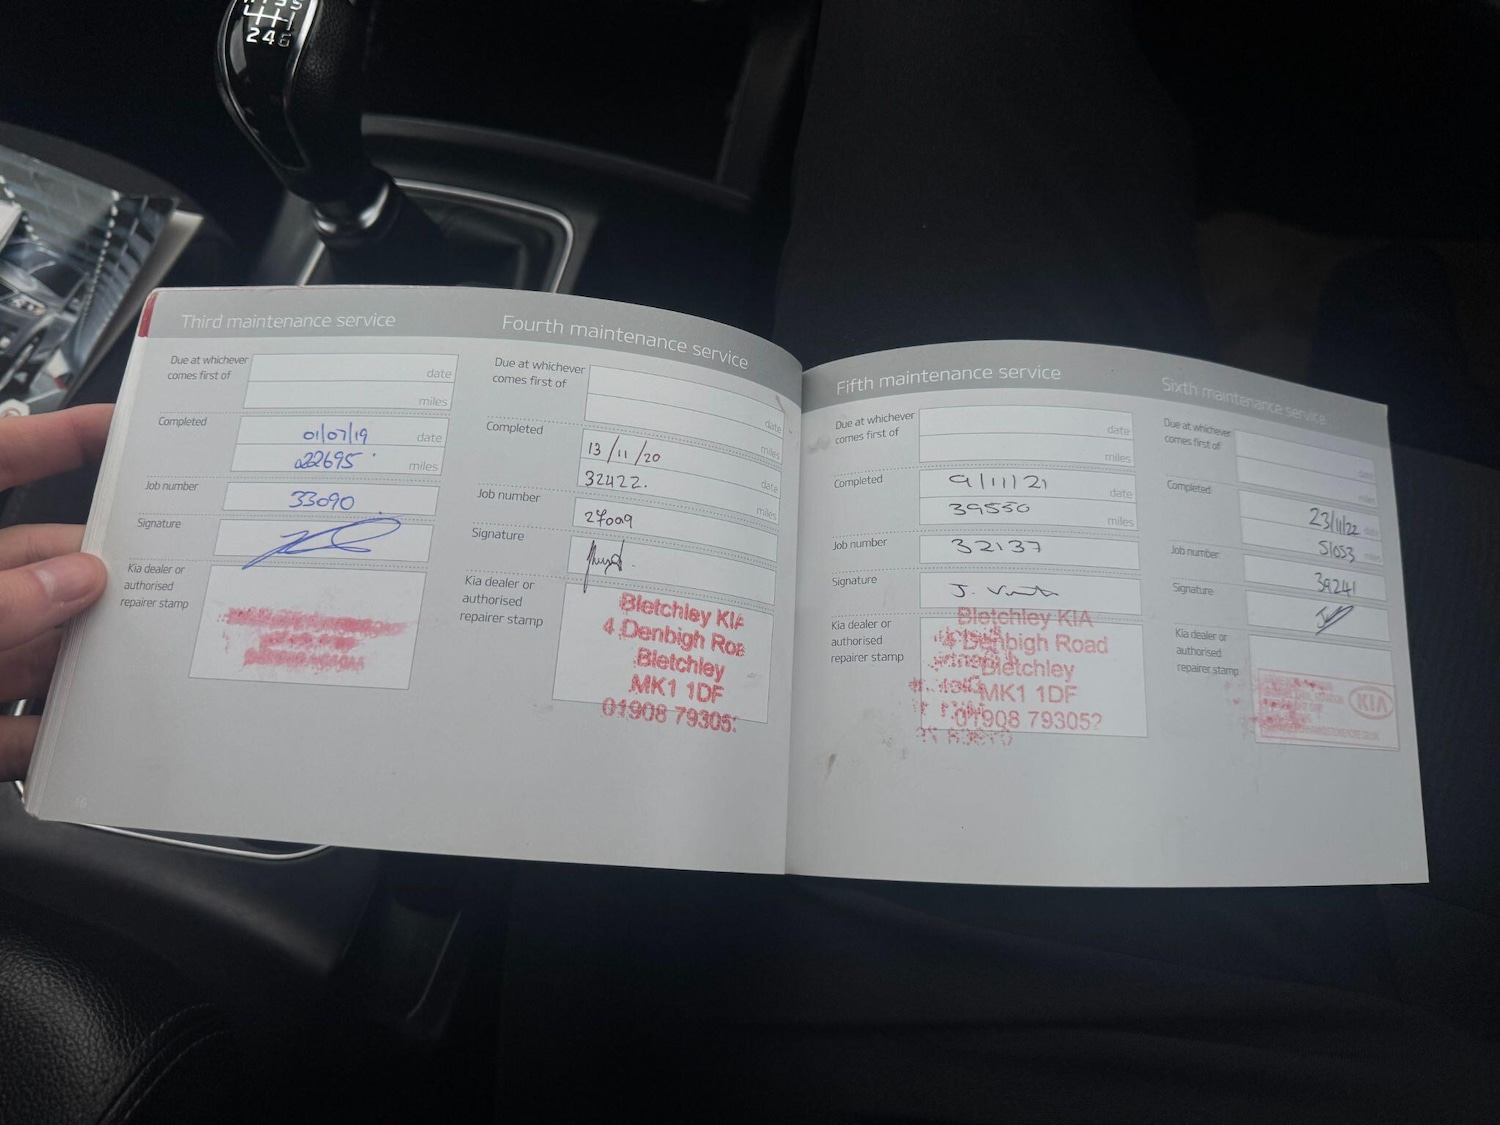 5
2 4 6
Third maintenance service
Due at whichever
comes first of
date
miles
Completed
01/07/19 date
22695 miles
Job number
33090
Signature
Kia dealer or
authorised
repairer stamp
16
Fourth maintenance service
Due at whichever
comes first of
date
miles
Completed
13/11/20
date
32422.
miles
Job number
27009
Signature
Kia dealer or
authorised
repairer stamp
Bletchley KIA
4 Denbigh Roa
Bletchley
MK1 1DF
01908 79305
Fifth maintenance service
Due at whichever
comes first of
date
miles
Completed
9/11/21
date
39550
miles
Job number
32137
Signature
J.
Kia dealer or
authorised
repairer stamp
Bletchley KIA
4 Denbigh Road
Bletchley
MK1 1DF
01908 793052
Sixth maintenance service
Due at whichever
comes first of
date
miles
Completed
23/11/22 date
51053 miles
Job number
39241
Signature
Kia dealer or
authorised
repairer stamp
KIA